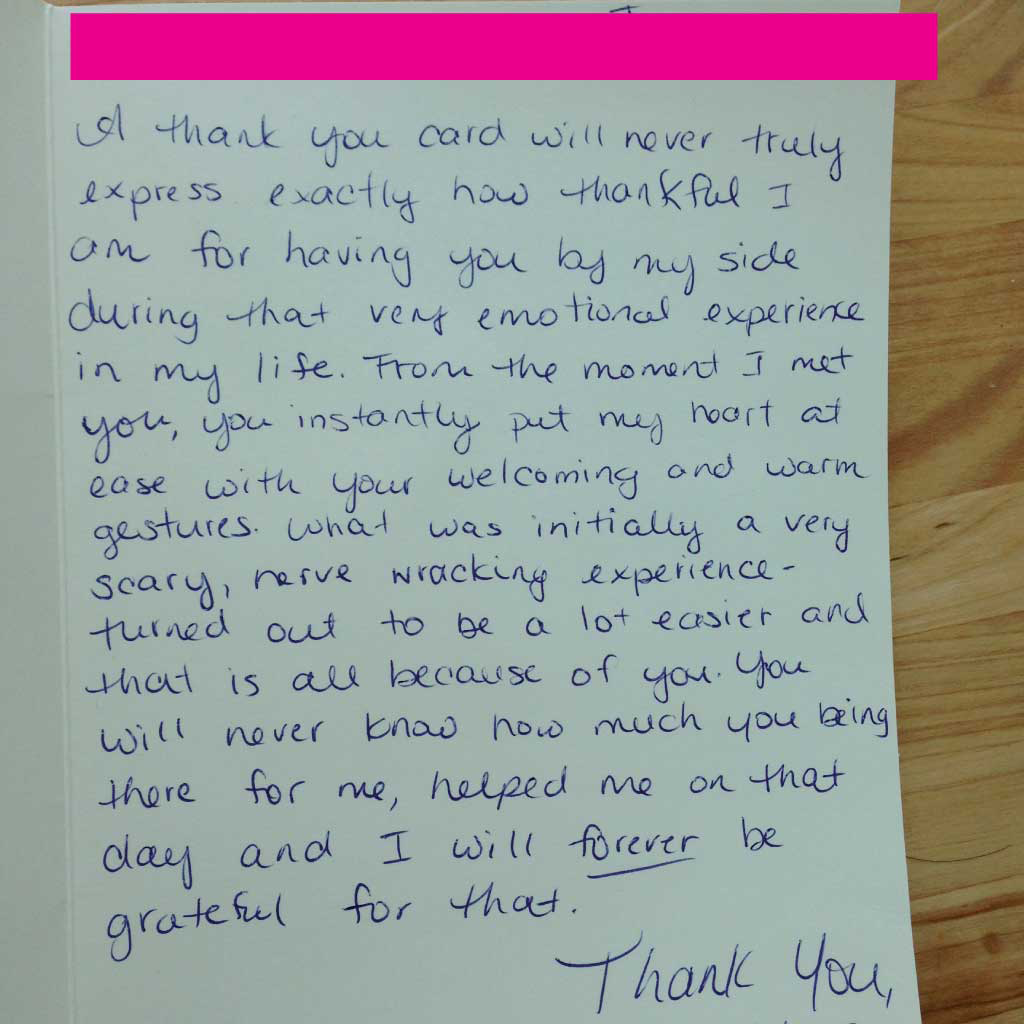 A thank you card will never truly
express exactly how thankful I
am for having you by my side
during that very emotional experience
in my life. From the moment I met
you, you instantly put my heart at
ease with your welcoming and warm
gestures. What was initially a very
scary, nerve wracking experience-
turned out to be a lot easier and
that is all because of you. You
will never know how much you being
there for me, helped me on that
day and I will forever be
grateful for that.
Thank You,